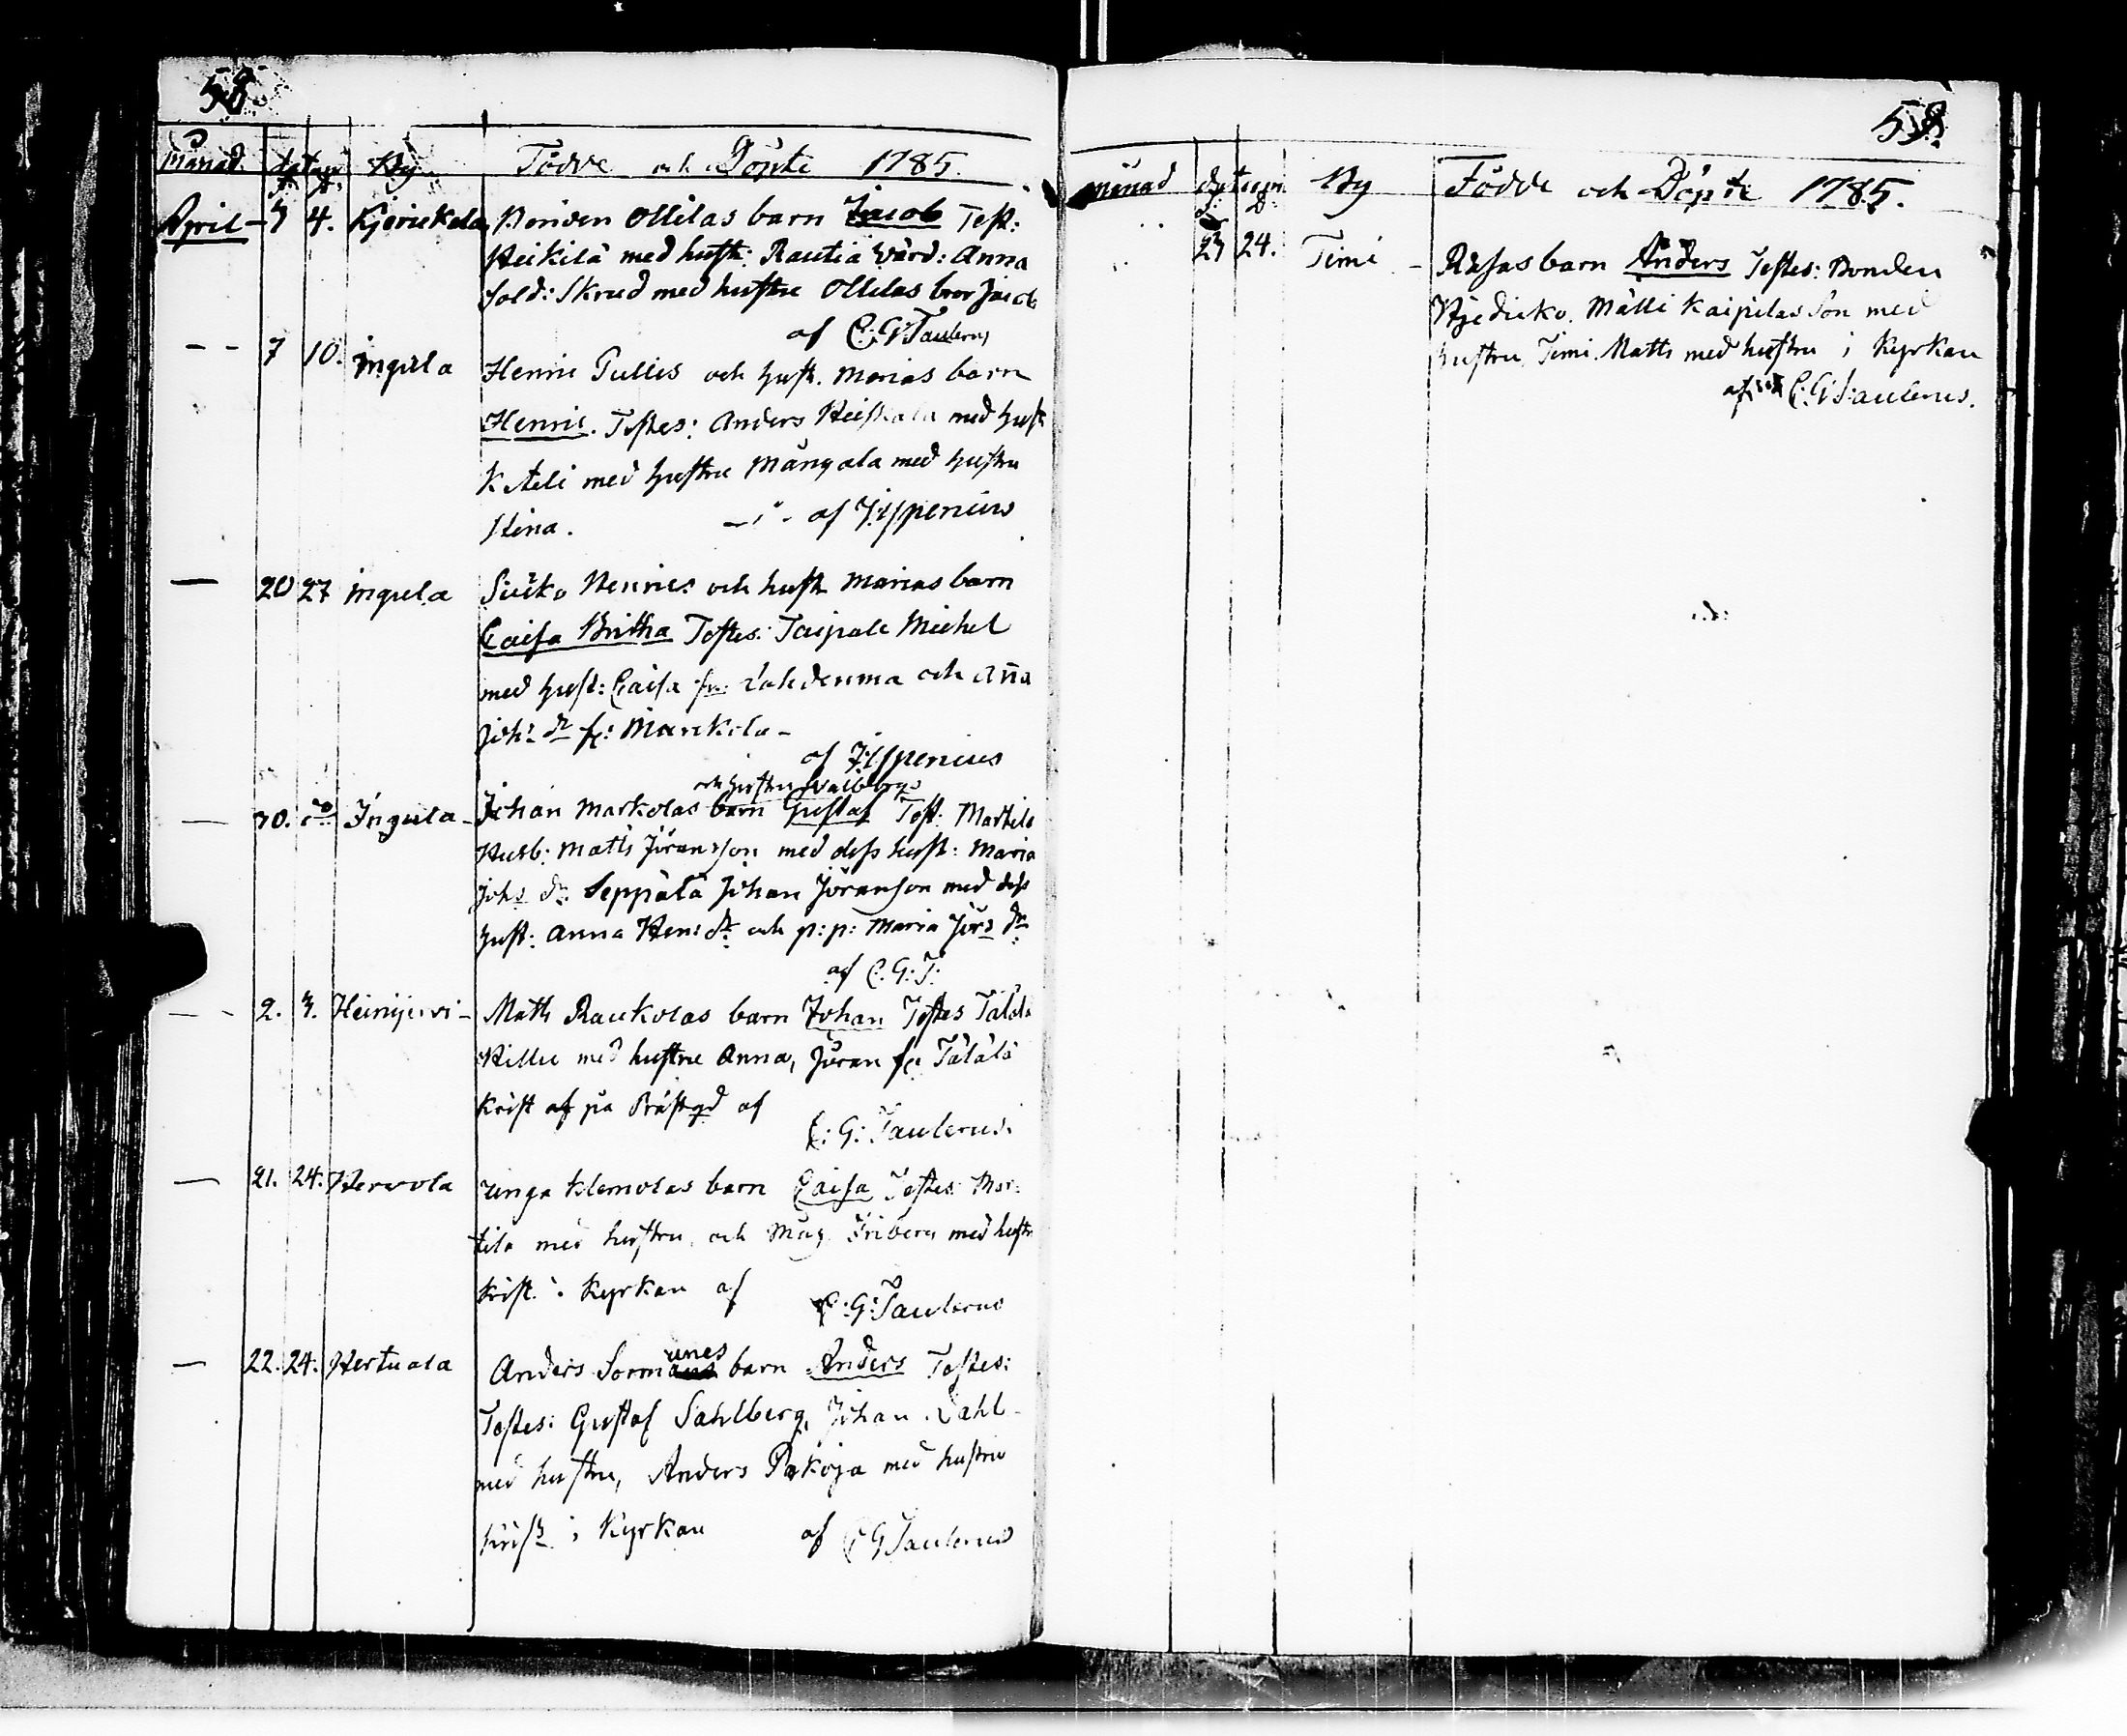 58.
Månad. datum By Födde och Döpte 1785.
f. d.
April 3 4. Kjerickala Bonden Ollilas barn Jacob Test:
Heikilä med hustr: Rautia Värd: Anna
Sold: Skrud med hustru Ollilas bror Jacob
af C:G:Taulerus
7 10. ingula Henric Pullis och hust. Marias barn
Henric. Testes: Anders Heiskala med hust
K Ateli med hustru Mångala med hustru
Stina. af J:Ispenius
20 27 ingula Suiko Henrics och hustr Marias barn
Caisa Britha Testes: Taipale Michel
med hust: Caisa fr: Lahdenma och Aña
Joh: dr fr: Markola
af J:Ispenius
och hustru Walborgs
30. do Ingula Johan Markolas barn Gustaf Test: Martila
Husb: Matts Jöransson med dess hust: Maria
Johs dr: Seppälä Johan Jöranson med dess
hust: Anna Hen: dr: och p:p: Maria Jörs dr
af C.G:T:
2. 3. Heinijervi Matts Raukolas barn Johan Testes
Killu med hustru Anna, Jöran fr: Tälälä
Krist af på Prästgd af
C:G:Taulerus.
21. 24. Hervola unga Klemolas barn Caisa Testes Mar-
tila med hustru och Mag Friberg med hustr
Krist. i Kyrkan af C:G:Taulerus
22. 24. Hertuala Anders Sormunes barn Anders Testes:
Testes: Gustaf Sahlberg, Johan Dahl-
med hustru, Anders Pakoja med hustru
Krist i Kyrkan af C G Taulerus
59.
månad datum By Födde och Döpte 1785.
f. d.
23 24. Timi Rasas barn Anders Testes: Bonden
Matti Kaipilas Son med
hustru Timi Matts med hustru i Kyrkan
af C.G:Taulerus.